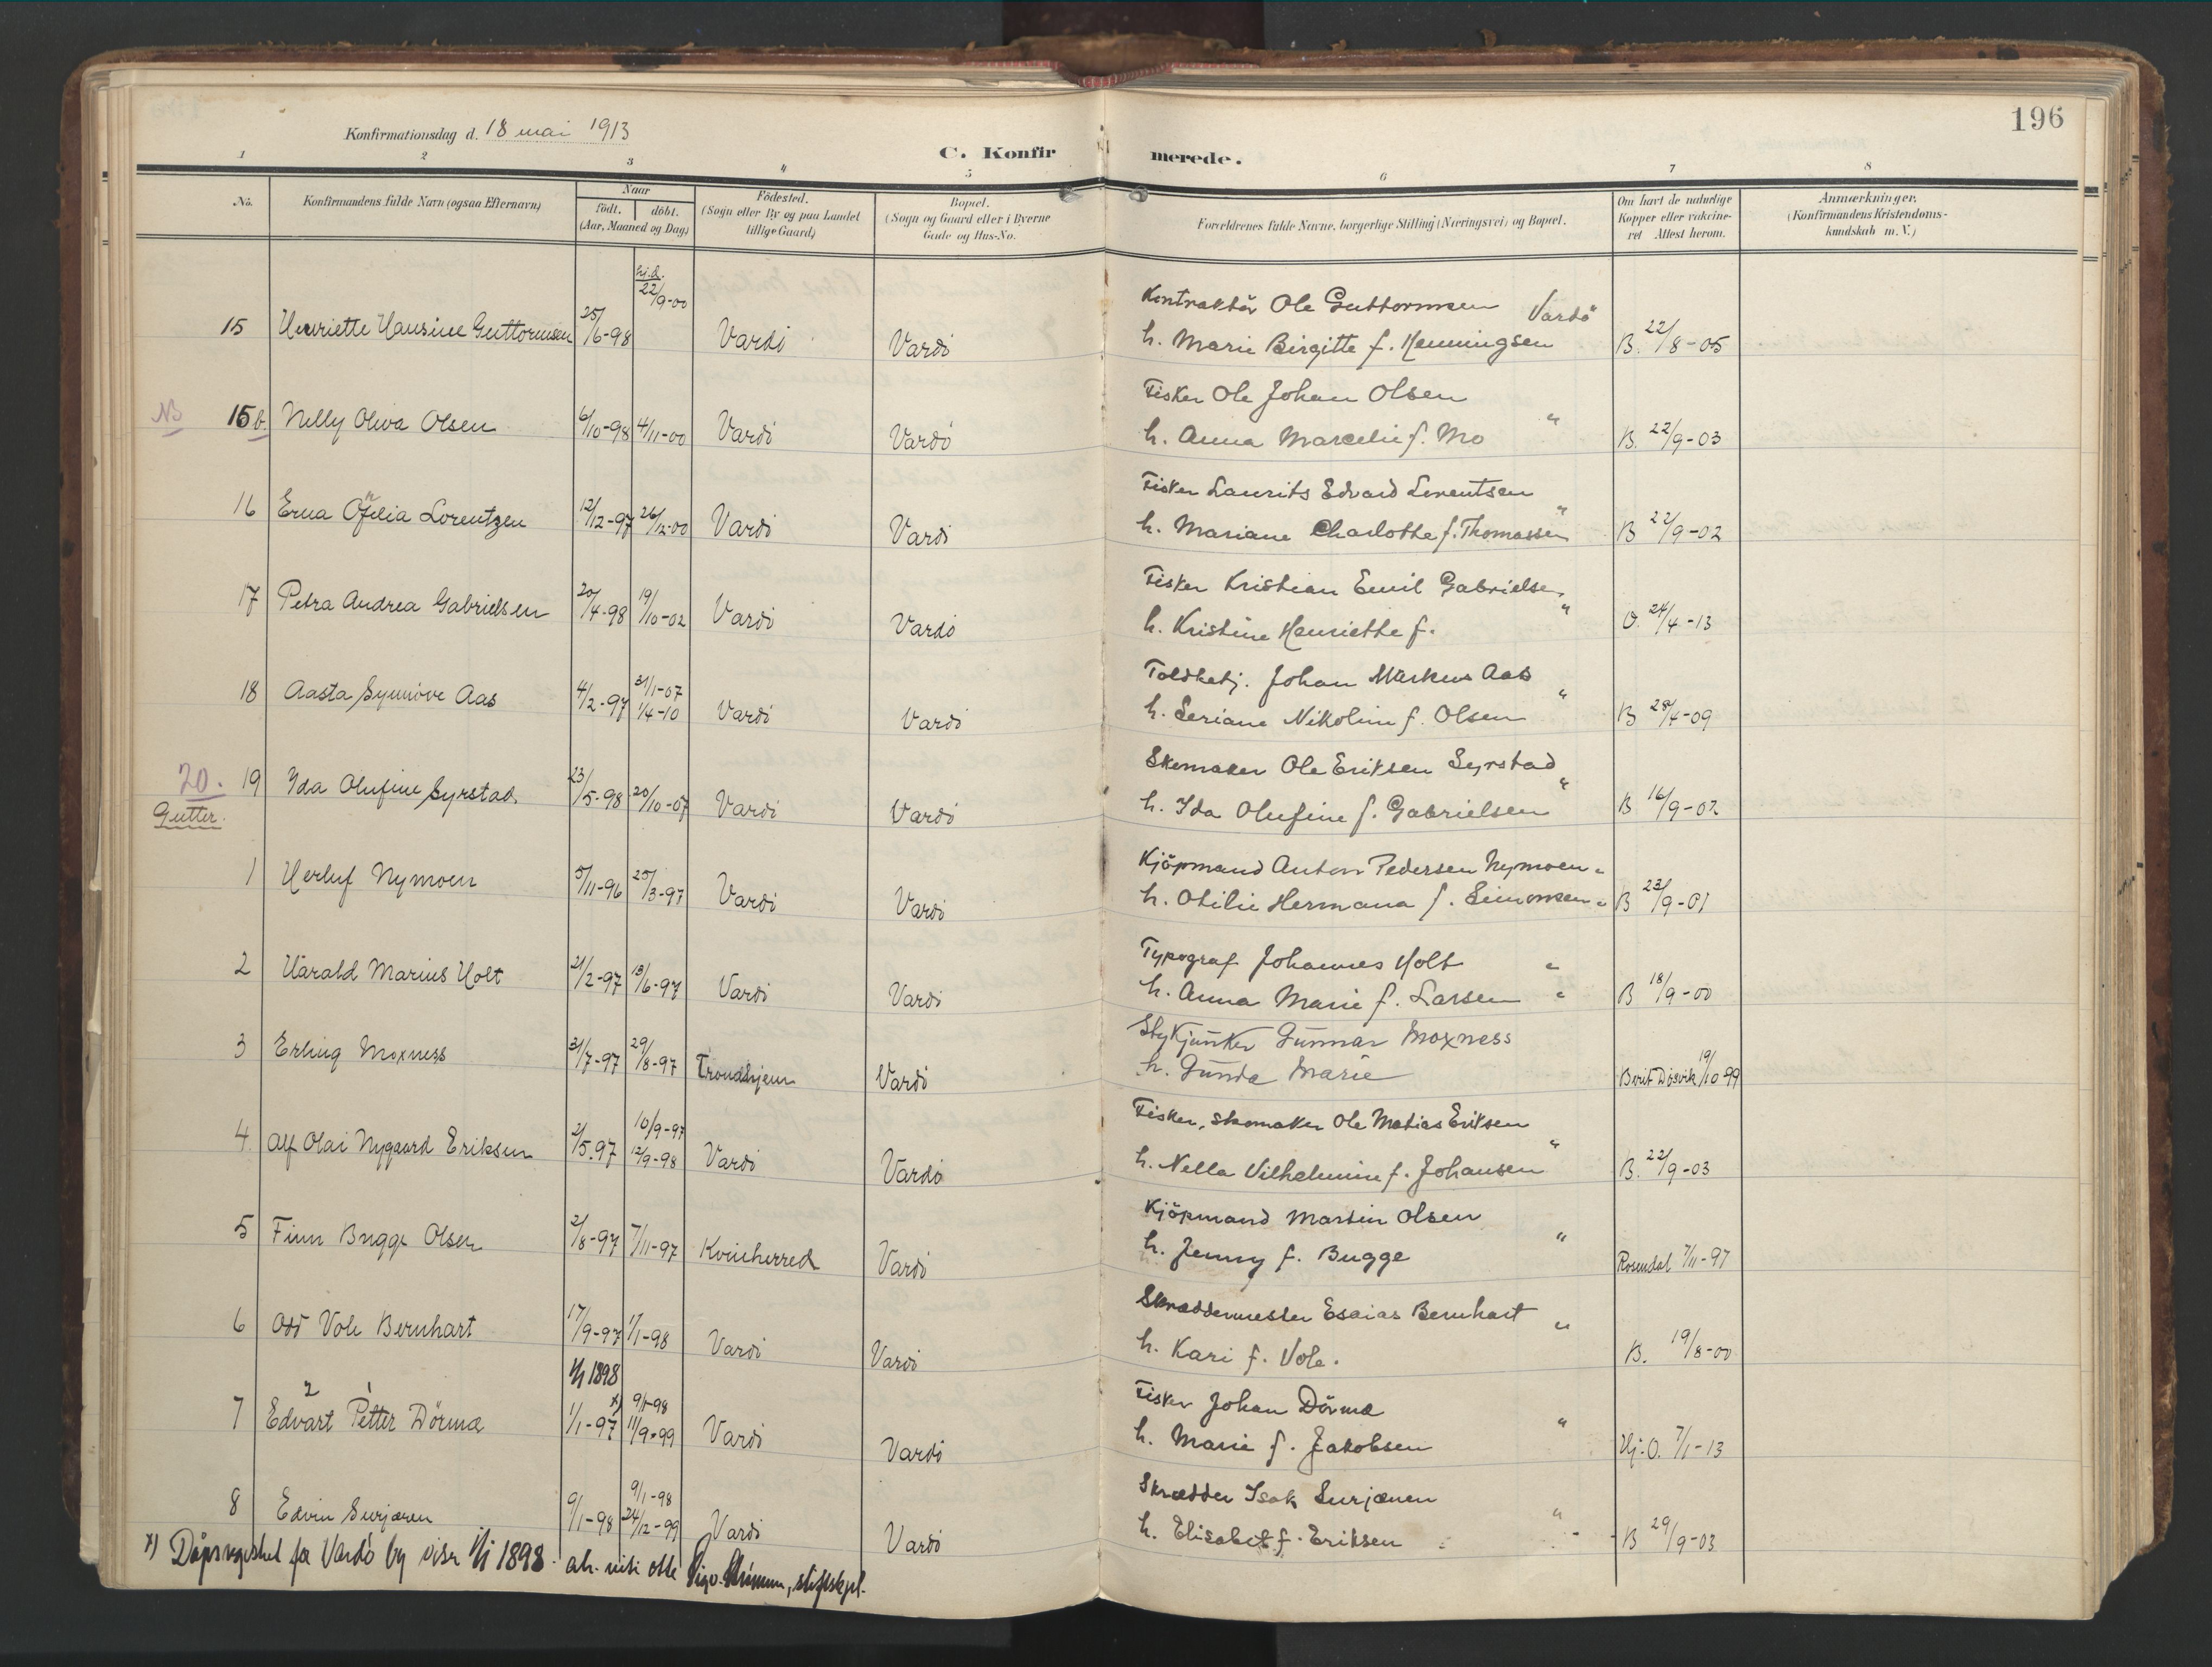 196
Konfirmationsdag d. 18 mai 1913
C. Konfirmerede.
1 2 3 4 5 6 7 8
No.
Konfirmandens fulde Navn (ogsaa Efternavn)
Naar
födt. döbt.
(Aar, Maaned og Dag)
Födested.
(Sogn eller By og paa Landet
tillige Gaard)
Bopæl.
(Sogn og Gaard eller i Byerne
Gade og Hus-No.
Forældrenes fulde Navne, borgerlige Stilling (Næringsvei) og Bopæl.
Om havt de naturlige
Kopper eller vakcine-
ret Attest herom.
Anmærkninger.
(Konfirmandens Kristendoms-
kundskab m.V.)
hj.d.
22/9-00
Kontraktör Ole Guttormsen Vardö
15 Henriette Hansine Guttormsen 25/6-98 Vardö Vardö h. Marie Birgitte f. Henningsen B. 22/8-05
Fisker Ole Johan Olsen
No 15b. Nelly Oliva Olsen 6/10-98 4/11-00 Vardö Vardö h. Anna Marcelie f. Mo " B. 22/9-03
Fisker Laurits Edvard Lorentsen
16 Erna Ofelia Lorentzen 12/12-97 26/12-00 Vardö Vardö h. Mariane Charlotte f. Thomassen " B 22/9-02
Fisker Kristian Emil Gabrielsen
17 Petra Andrea Gabrielsen 20/4-98 19/10-02 Vardö Vardö h. Kristine Henriette f. " O. 24/4-13
Toldbetj. Johan Markus Aas
31/1-07
18 Aasta Synnöve Aas 4/2-97 1/4-10 Vardö Vardö h. Seriane Nikoline f. Olsen " B 28/4-09
Skomaker Ole Eriksen Syrstad
20. 19 Ida Olufine Syrstad. 23/5-98 20/10-07 Vardö Vardö h. Ida Olufine f. Gabrielsen " B 16/9-02
Gutter.
Kjöpmand Anton Pedersen Nymoen "
1 Herluf Nymoen 5/11-96 25/3-97 Vardö Vardö h. Otilie Hermana f. Simonsen " B 23/9-01
Typograf Johannes Holt "
2 Harald Marius Holt 21/2-97 13/6-97 Vardö Vardö h. Anna Marie f. Larsen " B 18/9-00
Stykjunker Gunnar Moxness
3 Erling Moxness 31/7-97 29/8-97 Trondhjem Vardö h. Gunda Marie Berit Dösvik 19/10 99
Fisker, skomaker Ole Matias Eriksen
10/9-97
4 Alf Olai Nygaard Eriksen 2/5.97 12/9-98 Vardö Vardö h. Nella Vilhelmine f. Johansen " B. 22/9-03
Kjöpmand Martin Olsen
5 Finn Bugge Olsen 2/8-97 7/11-97 Kvinherred Vardö h. Jenny f. Bugge " Rosendal 7/11-97
Skræddermester Esaias Bernhart "
6 Odd Vole Bernhart 17/9-97 1/1-98 Vardö Vardö h. Kari f. Vole. B. 19/8-00
1/1 1898
2 1 x) 9/1-98
Fisker Johan Dörmæ
7 Edvart Petter Dörmæ 1/1-97 11/9-99 Vardö Vardö h. Marie f. Jakobsen " Hj.O. 7/1-13
9/1-98
Skrædder Isak Surjænen
8 Edvin Surjænen 9/1-98 24/12-99 Vardö Vardö h. Elisabet f. Eriksen " B 29/9-03
x) Dåpsregistret for Vardö by viser 1/1 1898.